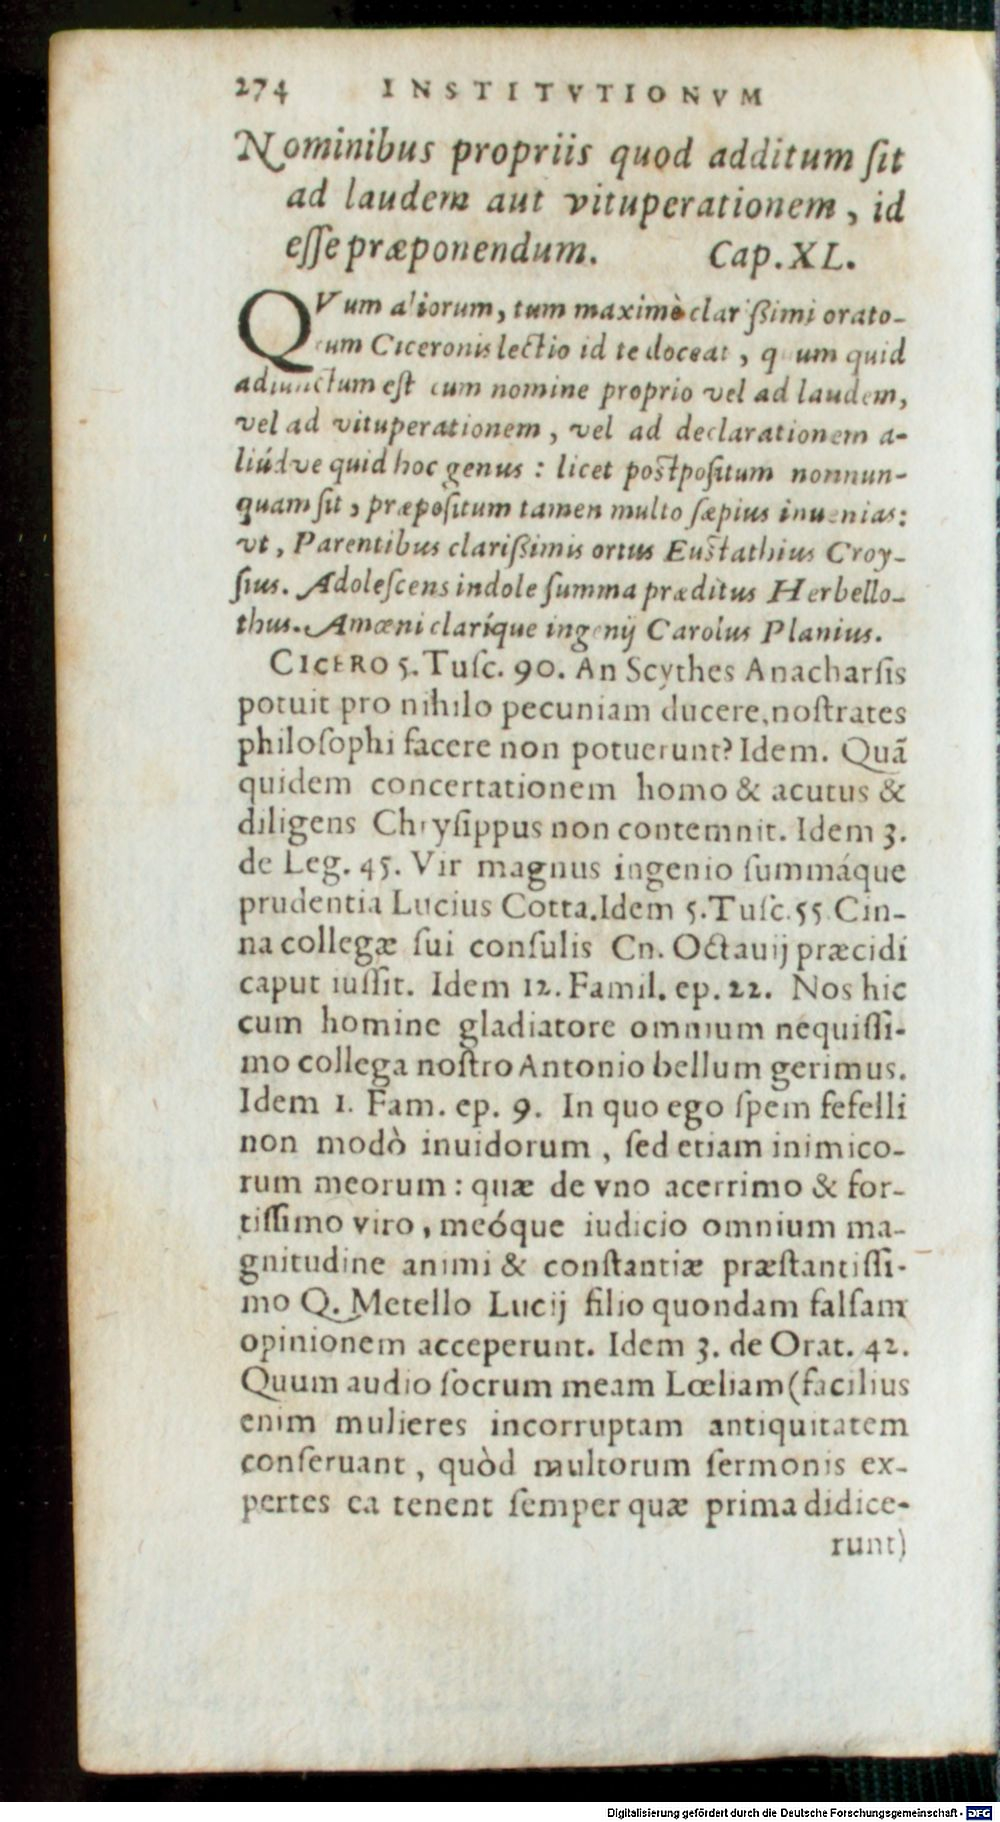 274 INSTITVTIONVM
Nominibus propriis quod additum ſit
ad laudem aut vituperationem, id
eſſe præponendum. Cap. XL.
QVum aliorum, tum maximè clariſsimi orato-
rum Ciceronis lectio id te doceat, quum quid
adiunctum eſt cum nomine proprio vel ad laudem,
vel ad vituperationem, vel ad declarationem a-
liúdve quid hoc genus : licet poſtpoſitum nonnun-
quam ſit, præpoſitum tamen multo ſæpius inuenias:
vt, Parentibus clariſsimis ortus Euſtathius Croy-
ſius. Adoleſcens indole ſumma præditus Herbello-
thus. Amœni claríque ingenij Carolus Planius.
CICERO 5. Tuſc. 90. An Scythes Anacharſis
potuit pro nihilo pecuniam ducere, noſtrates
philoſophi facere non potuerunt? Idem. Quã
quidem concertationem homo & acutus &
diligens Chryſippus non contemnit. Idem 3.
de Leg. 45. Vir magnus ingenio ſummáque
prudentia Lucius Cotta. Idem 5. Tuſc. 55 Cin-
na collegæ ſui conſulis Cn. Octauij præcidi
caput iuſſit. Idem 12. Famil. ep. 22. Nos hic
cum homine gladiatore omnium nequiſſi-
mo collega noſtro Antonio bellum gerimus.
Idem 1. Fam. ep. 9. In quo ego ſpem fefelli
non modò inuidorum, ſed etiam inimico-
rum meorum : quæ de vno acerrimo & for-
tiſſimo viro, meóque iudicio omnium ma-
gnitudine animi & conſtantiæ præſtantiſſi-
mo Q. Metello Lucij filio quondam falſam
opinionem acceperunt. Idem 3. de Orat. 42.
Quum audio ſocrum meam Lœliam (facilius
enim mulieres incorruptam antiquitatem
conſeruant, quòd multorum ſermonis ex-
pertes ea tenent ſemper quæ prima didice-
runt)
Digitalisierung gefördert durch die Deutsche Forschungsgemeinschaft - DFG